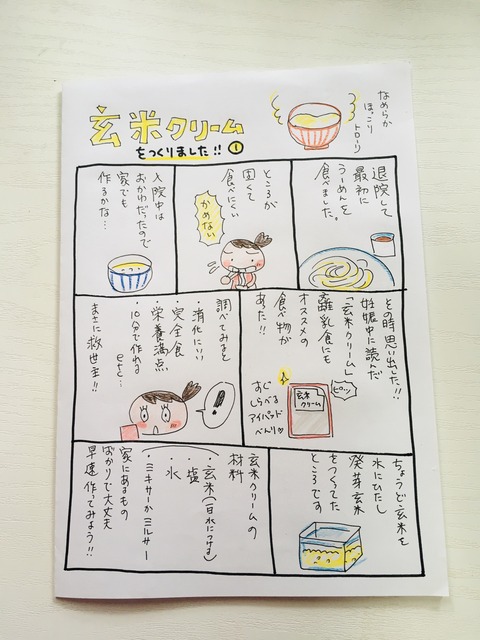 玄米クリーム
をつくりました!! ①
なめらか
ほっこり
トローリ
退院して
最初に
うーめんを
食べました。
ところが
固くて
食べにくい
かめない
入院中は
おかゆだったので
家でも
作るかな…
その時思い出した!!
妊娠中に読んだ
「玄米クリーム」
離乳食にも
オススメの
食べ物が
あった!!
ピッ
玄米
クリーム
すぐ
しらべる
アイパッド
べんり♡
調べてみると
・消化にいい
・完全食
・栄養満点
・10分で作れる
etc…
まさに救世主!!
!
ちょうど玄米を
水にひたし
発芽玄米
をつくってた
ところです
玄米クリームの
材料
・玄米(1日水につける)
・塩
・水
・ミキサーかミルサー
家にあるもの
ばかりで大丈夫
早速作ってみよう!!